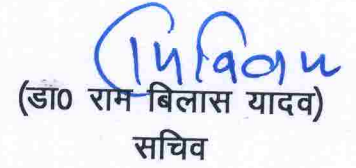 (डा0 राम बिलास यादव)
सचिव